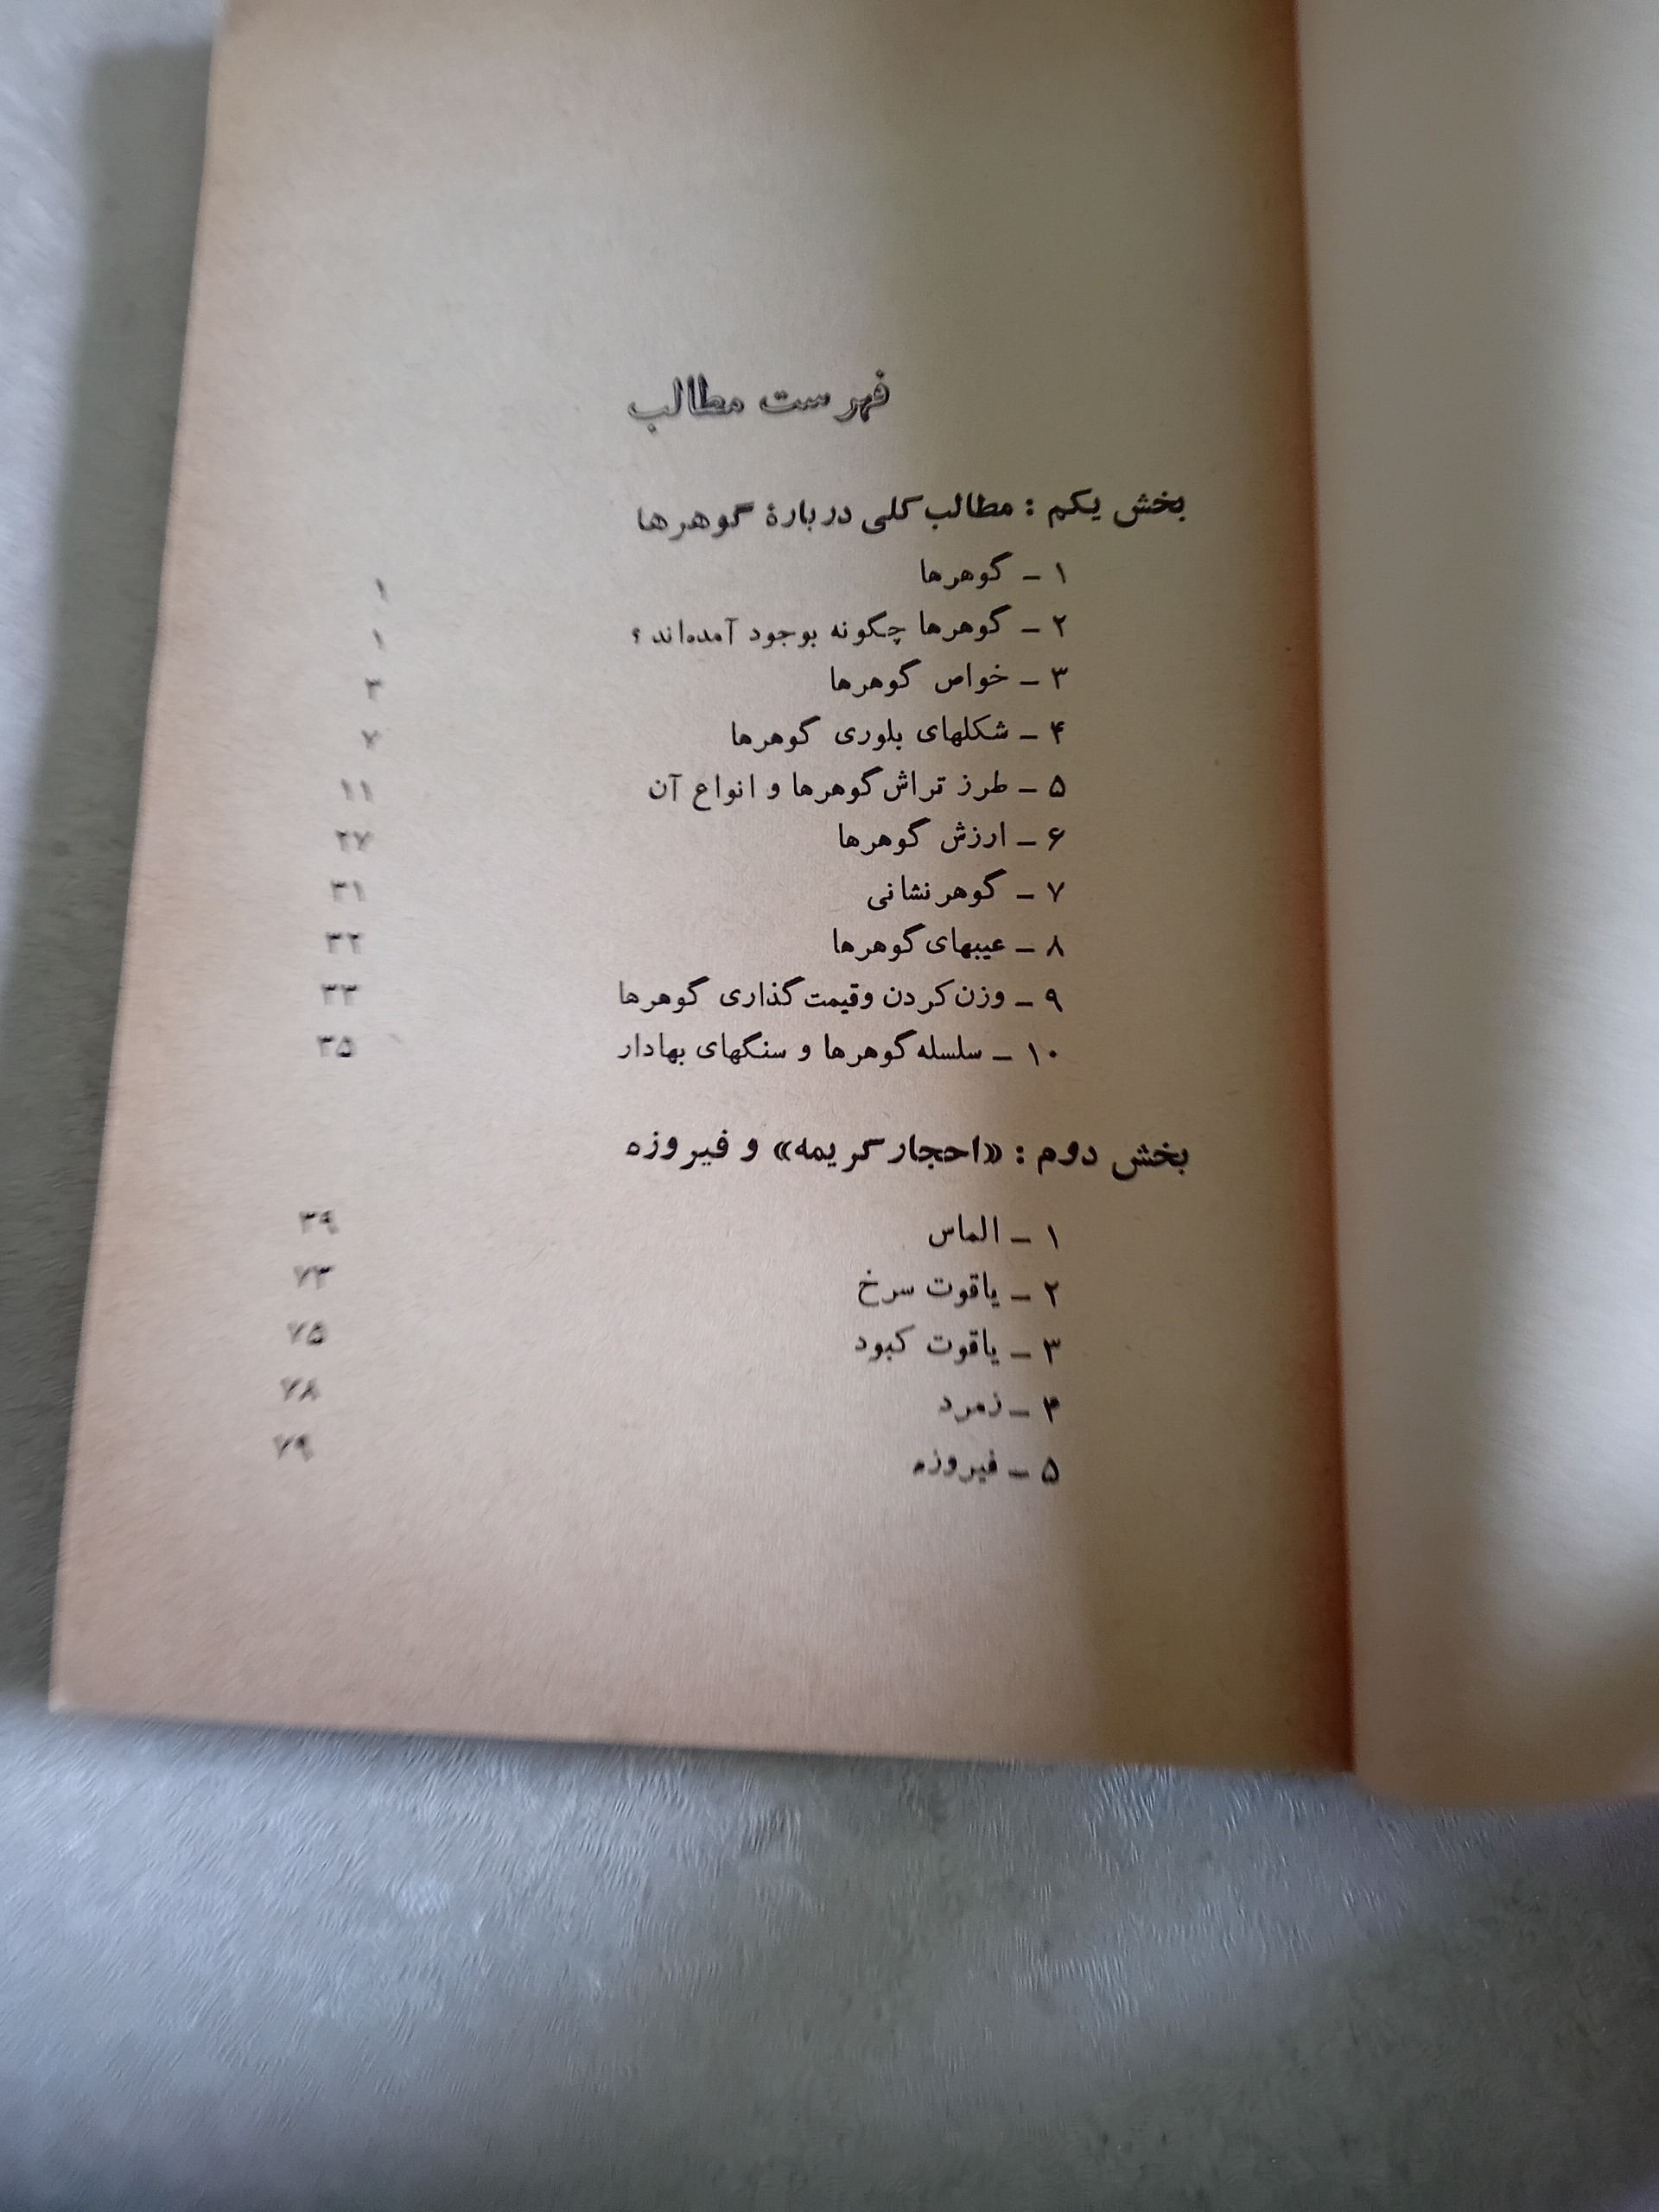 فهرست مطالب
بخش یکم : مطالب کلی دربارهٔ گوهرها
۱ – گوهرها ۱
۲ – گوهرها چگونه بوجود آمده‌اند ؟ ۱
۳ – خواص گوهرها ۳
۴ – شکلهای بلوری گوهرها ۷
۵ – طرز تراش گوهرها و انواع آن ۱۱
۶ – ارزش گوهرها ۲۷
۷ – گوهرنشانی ۳۱
۸ – عیبهای گوهرها ۳۲
۹ – وزن کردن و قیمت گذاری گوهرها ۳۳
۱۰ – سلسله گوهرها و سنگهای بهادار ۳۵
بخش دوم : «احجار کریمه» و فیروزه
۱ – الماس ۳۹
۲ – یاقوت سرخ ۷۳
۳ – یاقوت کبود ۷۵
۴ – زمرد ۷۸
۵ – فیروزه ۷۹